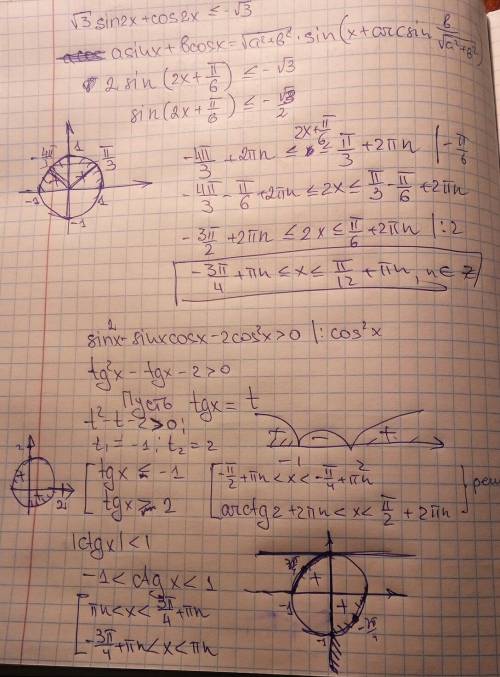 √3 sin2x + cos2x ≤ -√3
asinx + bcosx = √(a²+b²) · sin(x + arcsin b/√(a²+b²))
2 sin(2x + π/6) ≤ -√3
sin(2x + π/6) ≤ -√3/2
-4π/3 1 π/3
-1 1
-1
-4π/3 + 2πn ≤ 2x + π/6 ≤ π/3 + 2πn | -π/6
-4π/3 - π/6 + 2πn ≤ 2x ≤ π/3 - π/6 + 2πn
-3π/2 + 2πn ≤ 2x ≤ π/6 + 2πn |:2
-3π/4 + πn ≤ x ≤ π/12 + πn, n ∈ Z
sin²x - sinxcosx - 2cos²x > 0 |: cos²x
tg²x - tgx - 2 > 0
Пусть tgx = t
t² - t - 2 > 0;
t₁ = -1; t₂ = 2
+ - +
-1 2
2
2
[ tgx < -1
tgx > 2
[ -π/2 + πn < x < -π/4 + πn
arctg2 + 2πn < x < π/2 + 2πn } реш
|ctgx| < 1
-1 < ctgx < 1
[ πn < x < 3π/4 + πn
-3π/4 + πn < x < πn
+ +
-1
-1